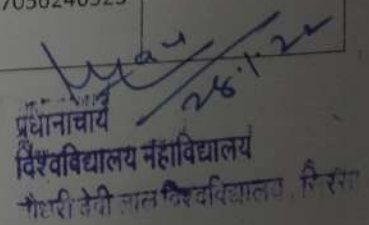 7056240525
28.1.22
प्रधानाचार्य
विश्वविद्यालय महाविद्यालय
चौधरी देवी लाल विश्वविद्यालय, सिरसा